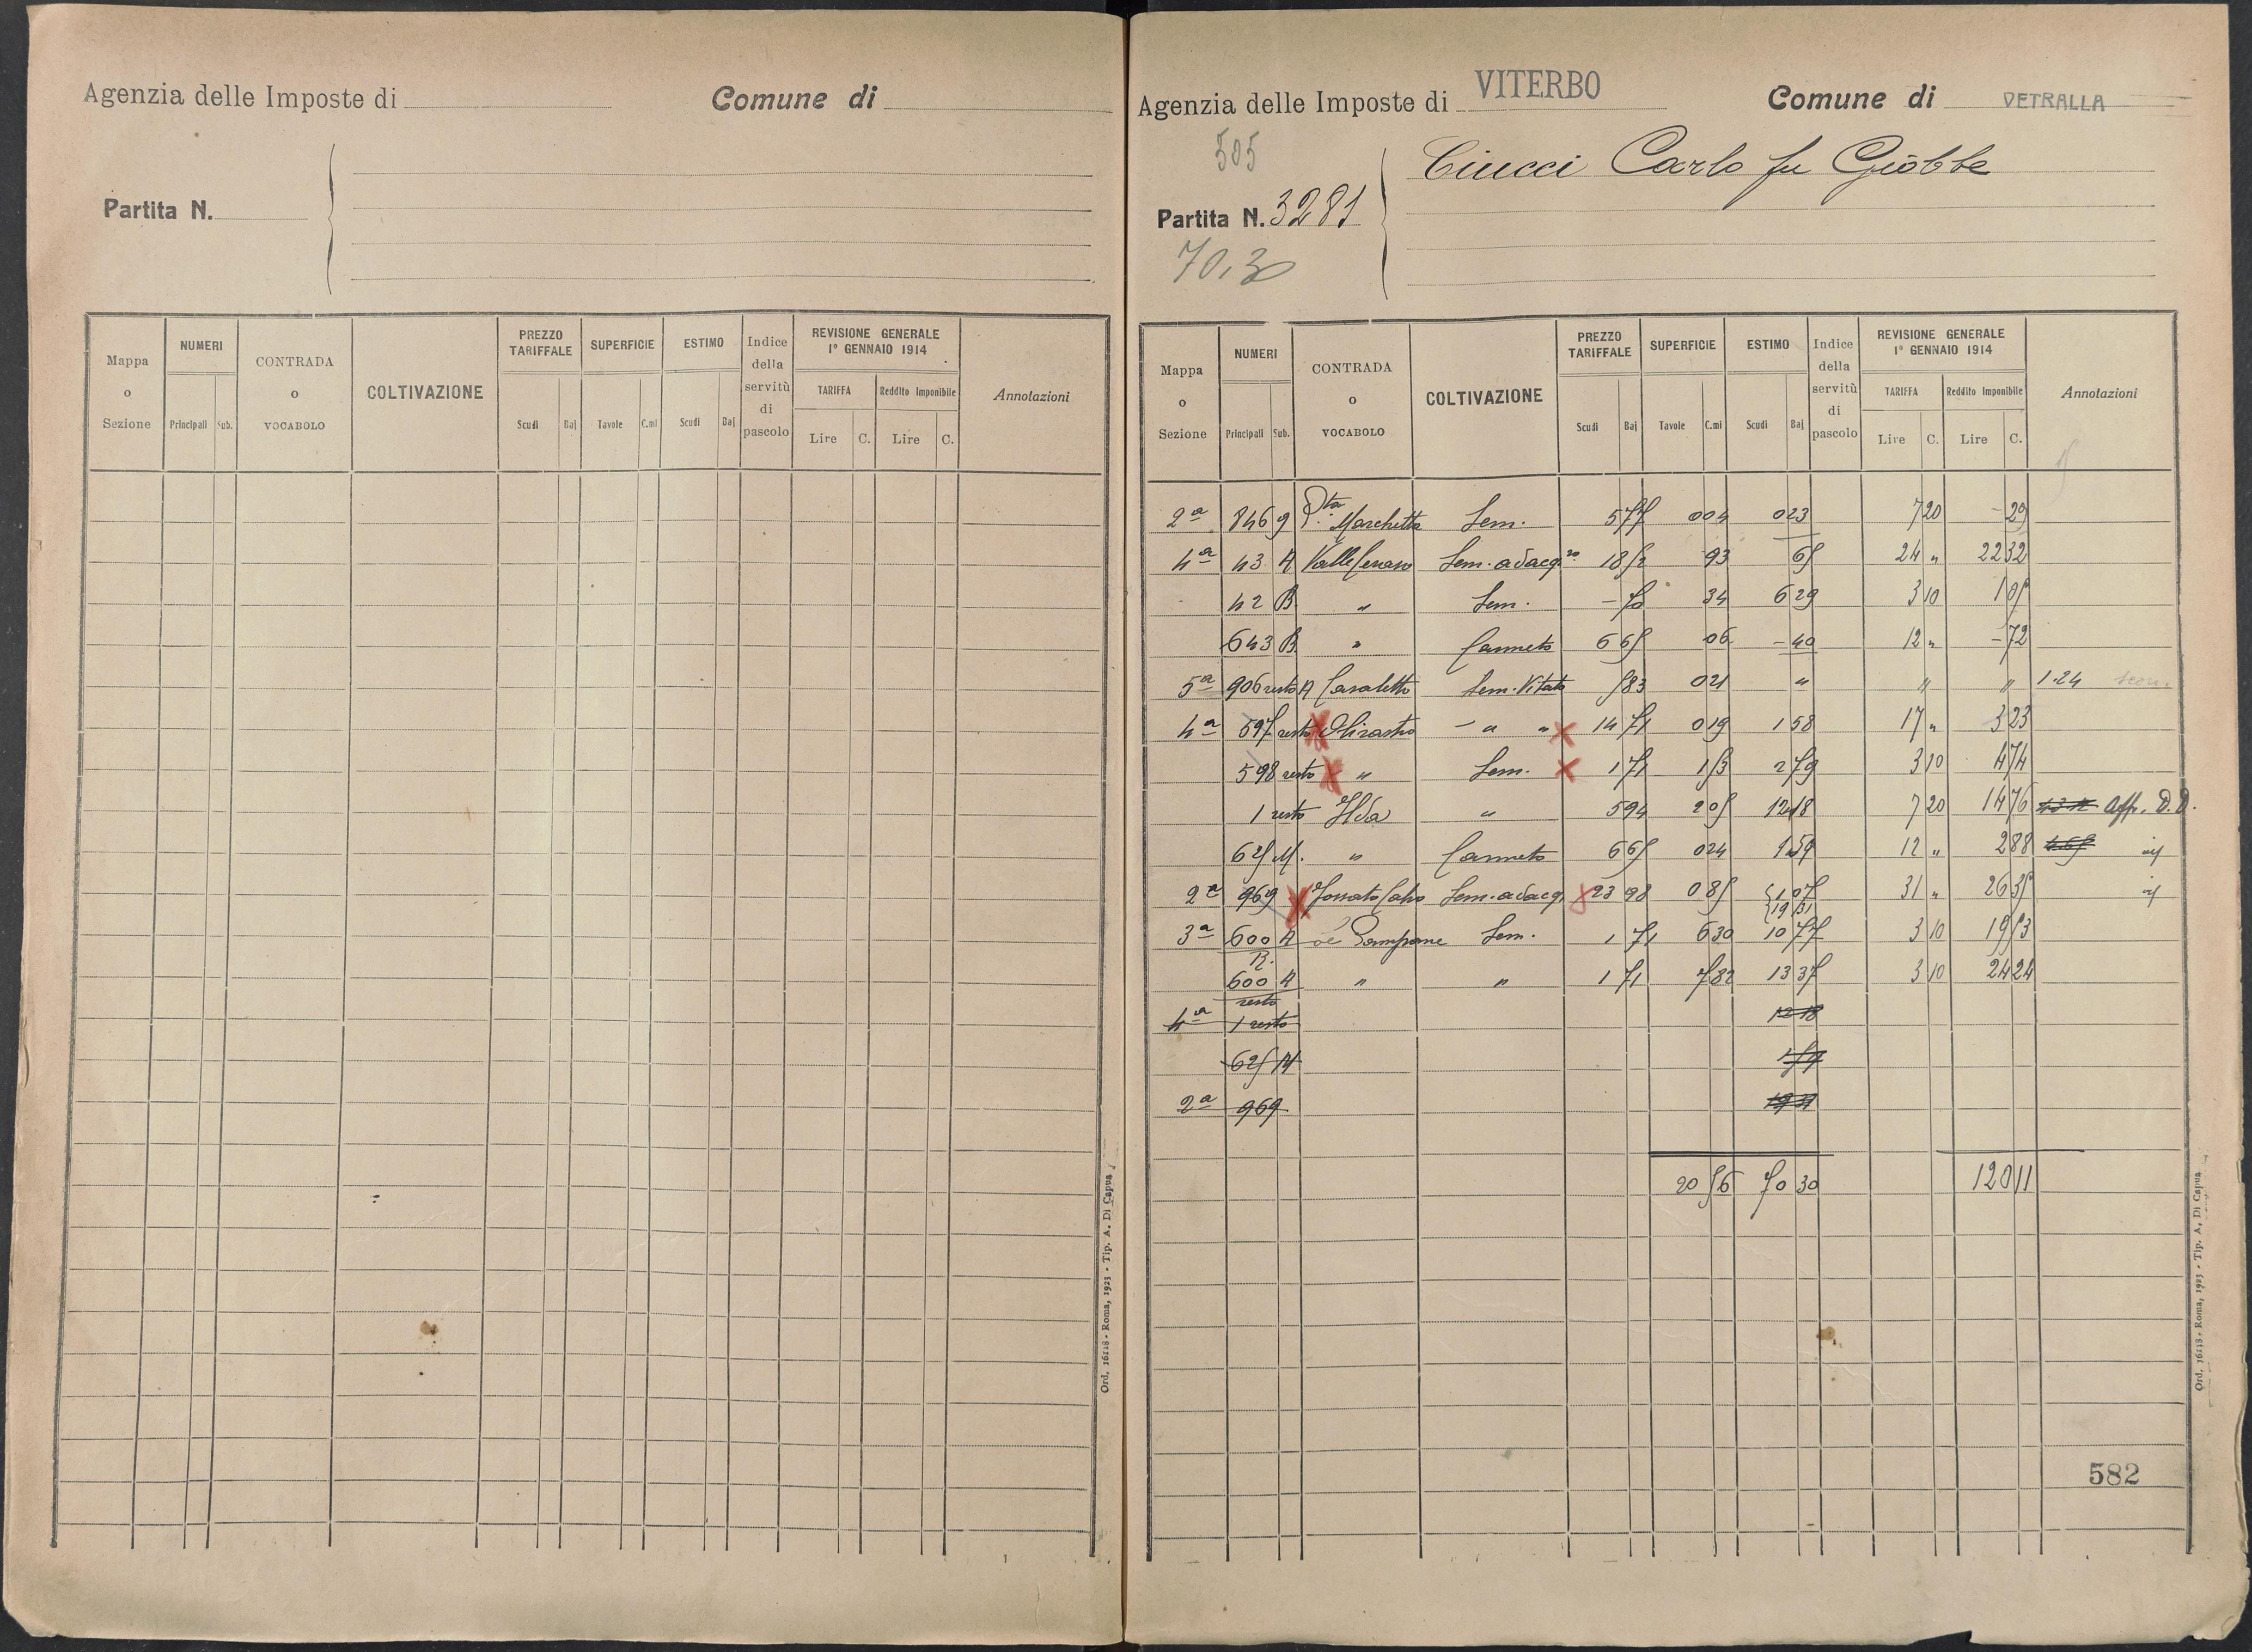 Agenzia delle Imposte di
Comune di
Partita N.
Mappa o Sezione
NUMERI
Principali Sub.
CONTRADA o VOCABOLO
COLTIVAZIONE
PREZZO TARIFFALE
Scudi Baj
SUPERFICIE
Tavole C.mi
ESTIMO
Scudi Baj
Indice della servitù di pascolo
REVISIONE GENERALE 1° GENNAIO 1914
TARIFFA Reddito Imponibile
Lire C. Lire C.
Annotazioni
Ord. 16118 - Roma, 1923 - Tip. A. Di Capua
Agenzia delle Imposte di VITERBO
Comune di VETRALLA
505
Partita N. 3281
70.30
Ciucci Carlo fu Giobbe
Mappa o Sezione
NUMERI
Principali Sub.
CONTRADA o VOCABOLO
COLTIVAZIONE
PREZZO TARIFFALE
Scudi Baj
SUPERFICIE
Tavole C.mi
ESTIMO
Scudi Baj
Indice della servitù di pascolo
REVISIONE GENERALE 1° GENNAIO 1914
TARIFFA Reddito Imponibile
Lire C. Lire C.
Annotazioni
2a 846 9 Marchetta Sem. 5 77 0 04 0 23 7 20 - 29
4a 43 A Sem. adacq. 93 24 " 22 32
42 B " Sem. 34 6 29 3 10 1 05
643 B " Canneto 6 65 06 - 40 12 " - 72
5a 906 resto A Casaletto Sem. Vitato 0 21 " " " 1.24
4a 597 resto Olivastro - " " 14 71 0 19 1 58 17 " 3 23
598 resto " Sem. 1 71 1 53 2 79 3 10 4 74
1 resto Ilda " 5 94 2 05 12 18 7 20 14 76 Aff. D. D.
625 M. " Canneto 6 65 0 24 1 59 12 " 2 88
2a 969 Sem. adacq. 23 98 0 85 1 07 31 " 26 35
19 31
3a 600 A Le Pampane Sem. 1 71 6 30 10 77 3 10 19 53
R.
600 A " " 1 71 7 82 13 37 3 10 24 24
resto
4a 1 resto 12 18
625 M
2a 969 19 31
20 56 70 30 120 11
582
Ord. 16118 - Roma, 1923 - Tip. A. Di Capua